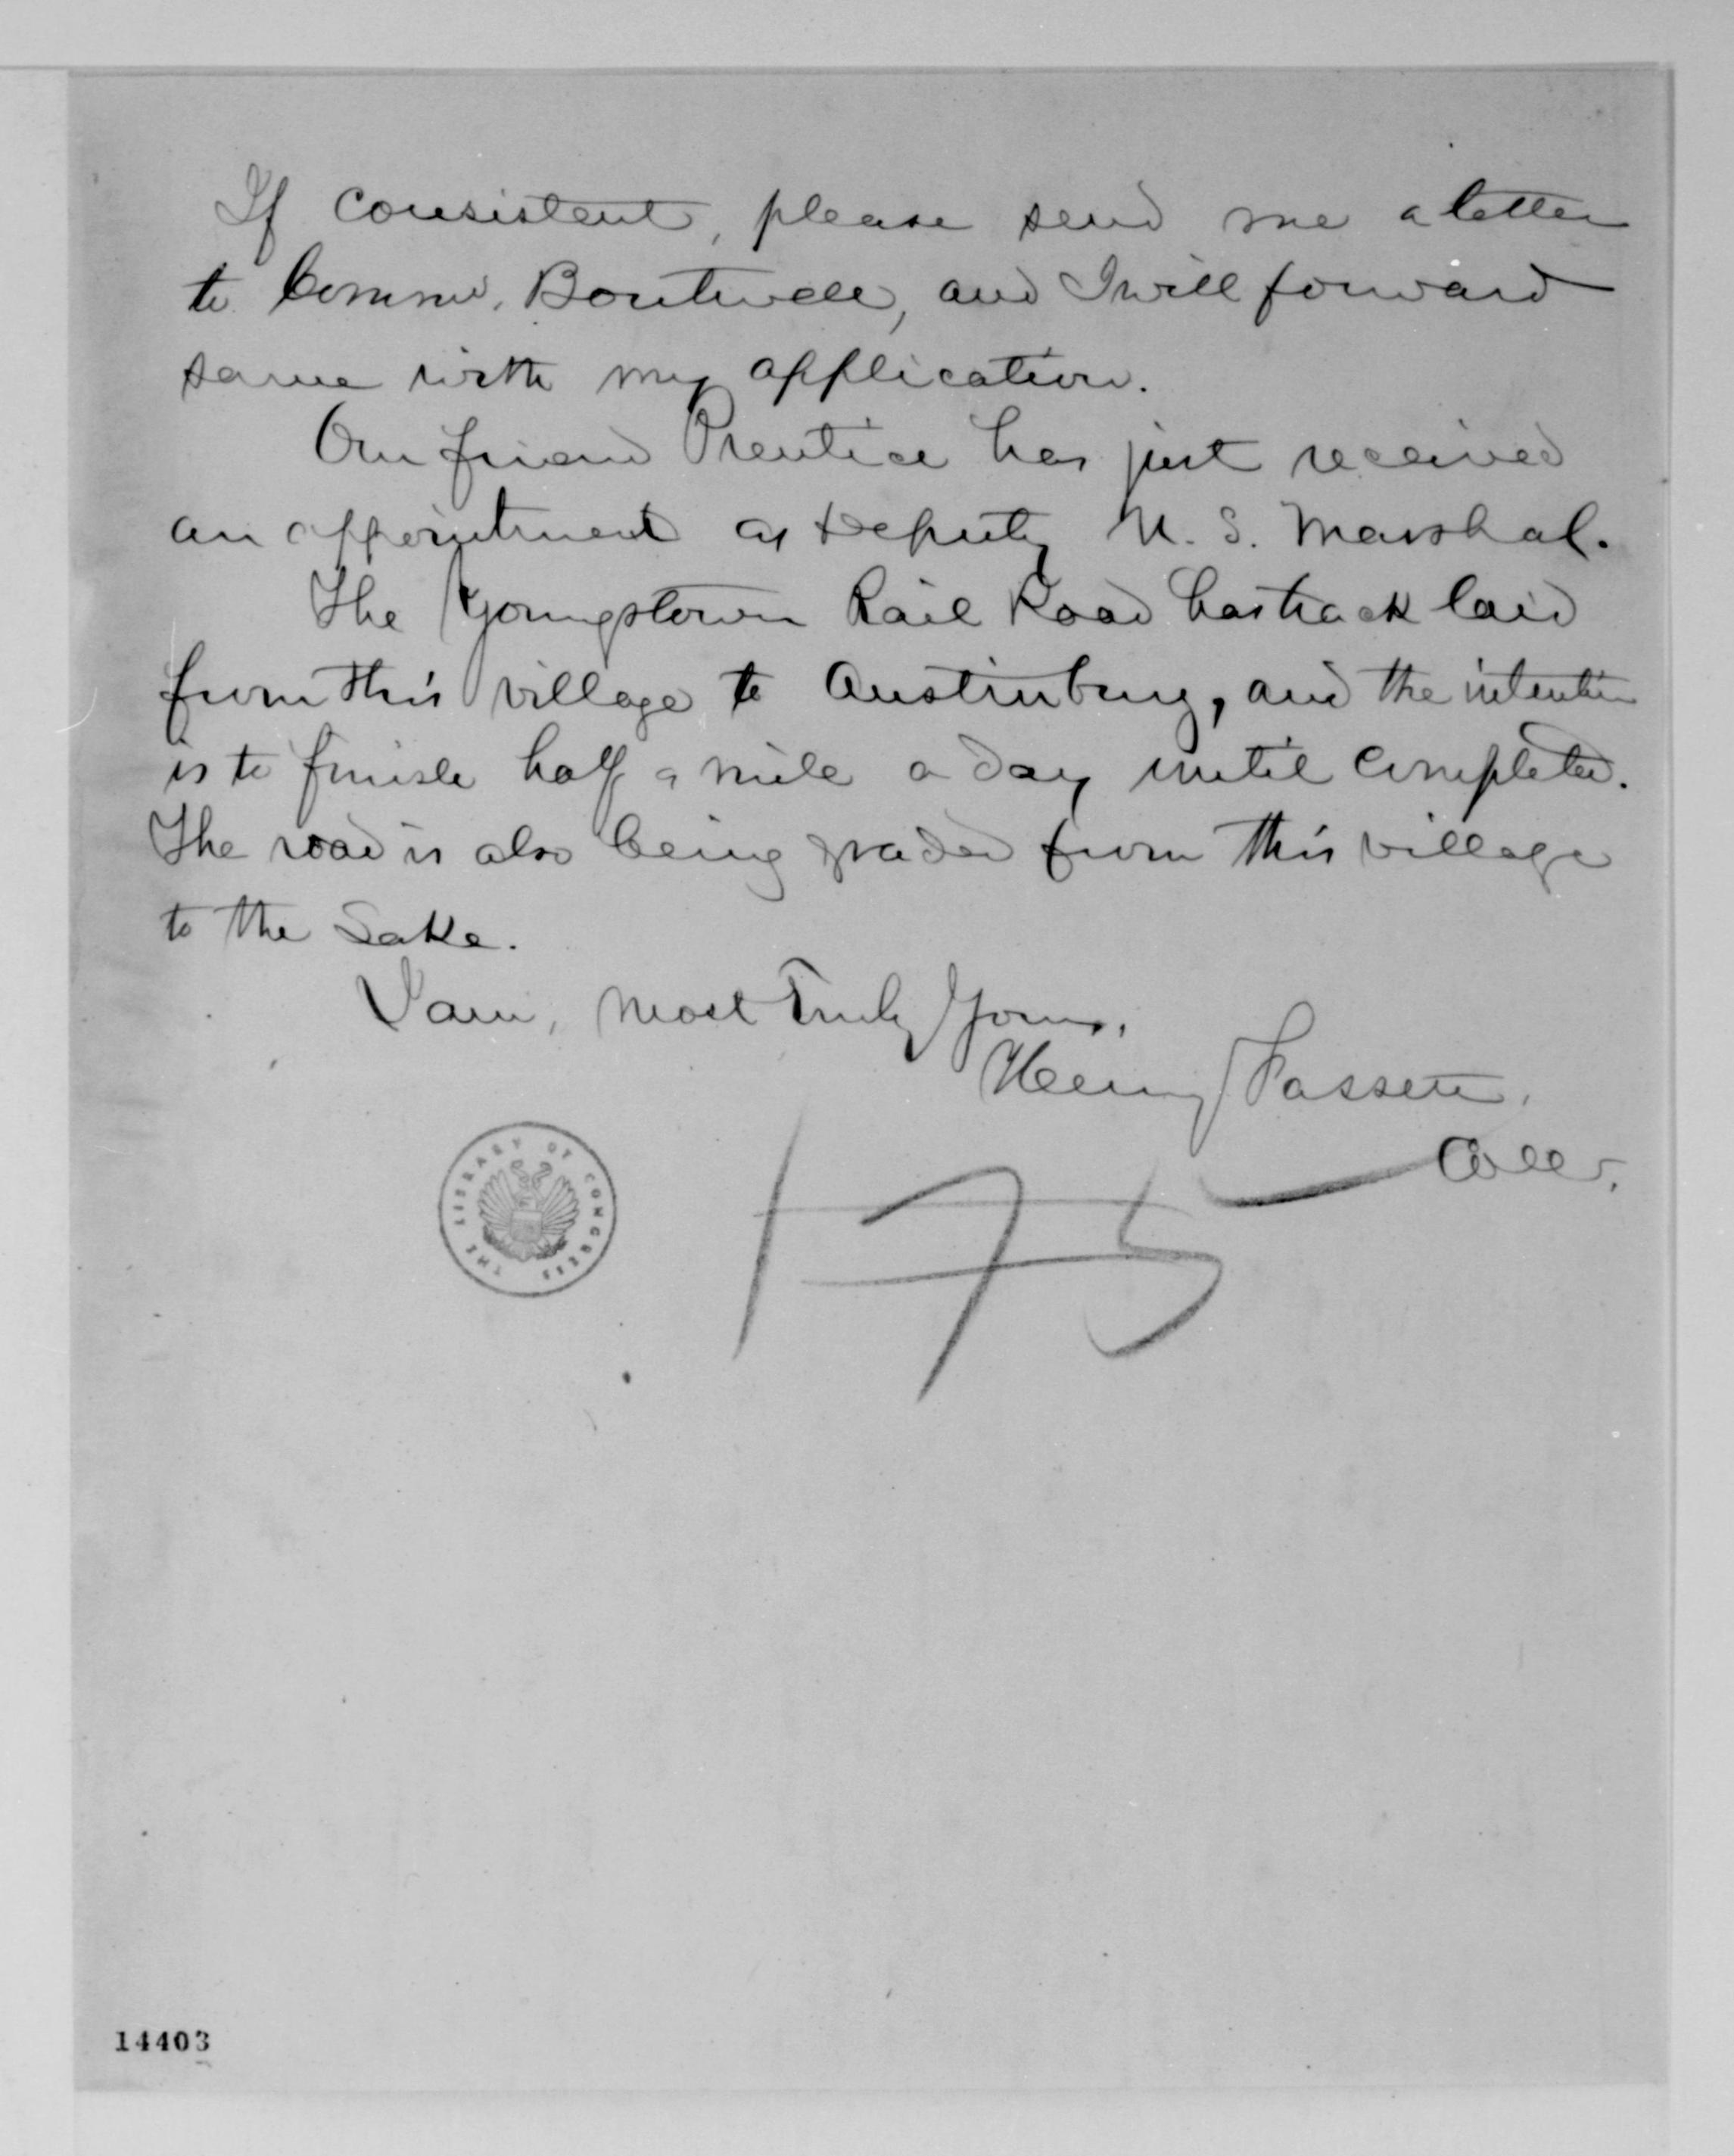 If consistent, please send me a letter
to Commr. Boutwell, and I will forward
same with my application.
Our friend Prentice has just received
an appointment as Deputy U. S. Marshal.
The Youngstown Rail Road has track laid
from this village to Austinburg, and the intention
is to finish half a mile a day until completed.
The road is also being graded from this village
to the Lake.
I am, Most Truly Yours,
Henry Fassett,
Collr.
THE LIBRARY OF CONGRESS
175
14403